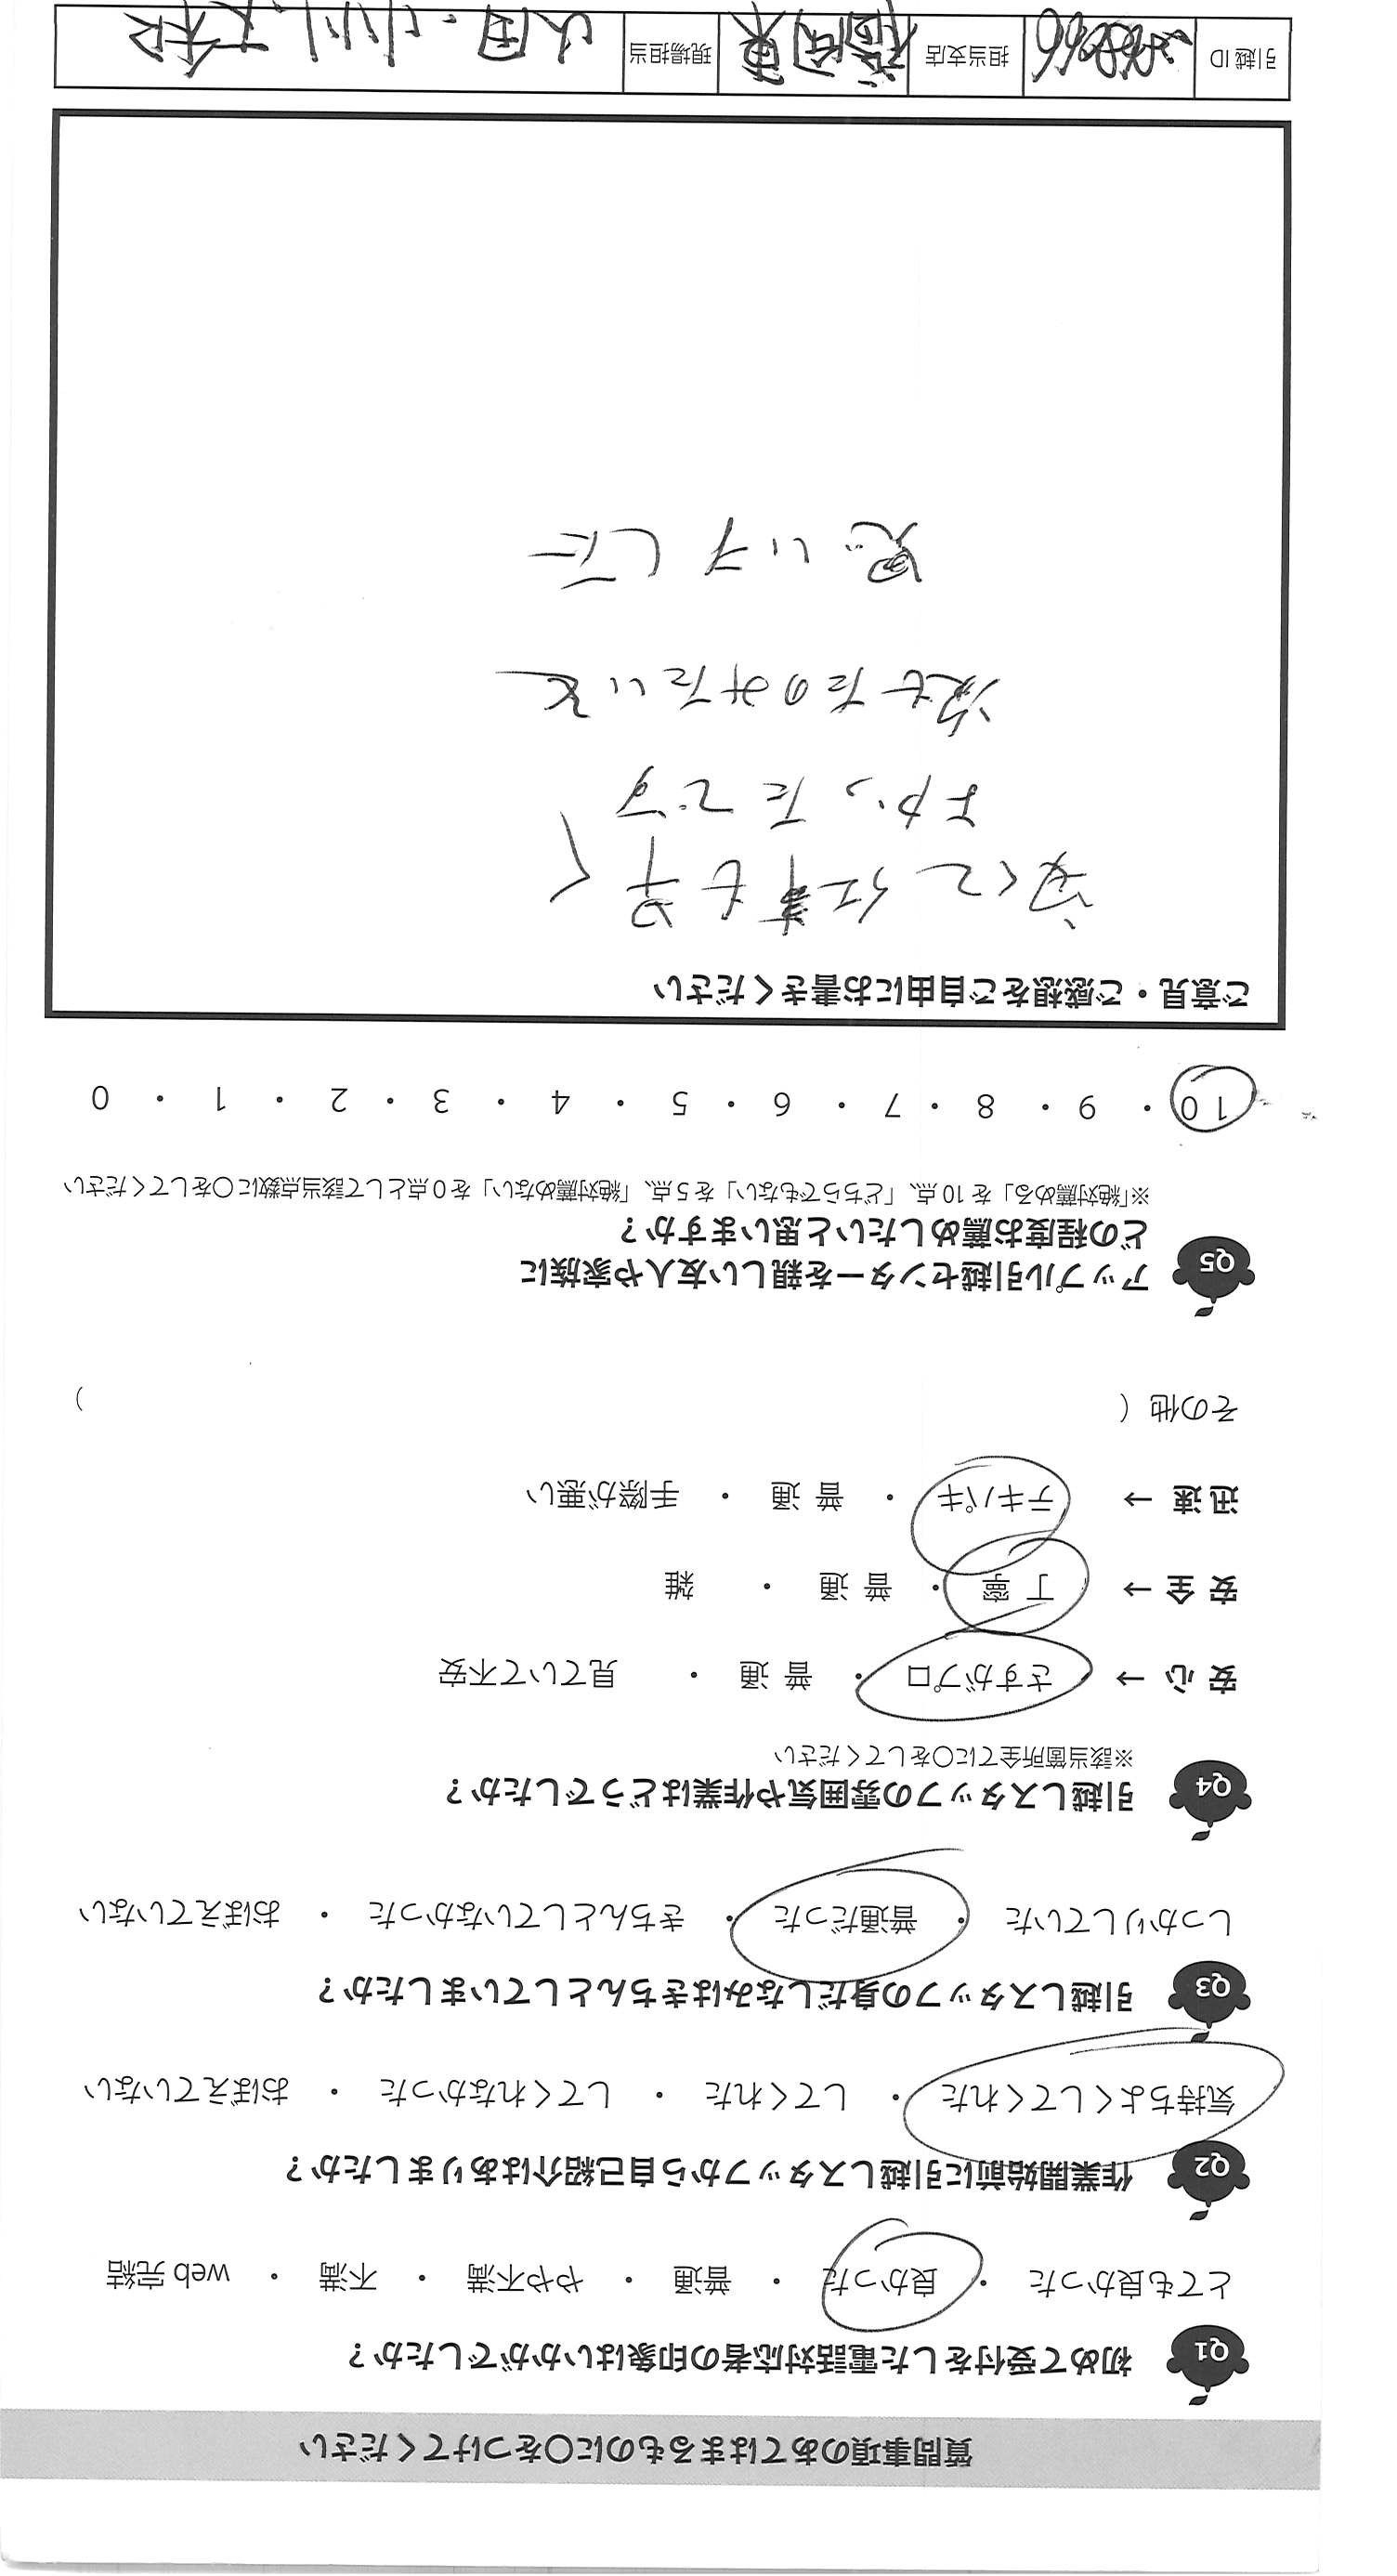 質問事項のあてはまるものに〇をつけてください
Q1 初めて受付をした電話対応者の印象はいかがでしたか？
とても良かった ・ 良かった ・ 普通 ・ やや不満 ・ 不満 ・ web 完結
Q2 作業開始前に引越しスタッフから自己紹介はありましたか？
気持ちよくしてくれた ・ してくれた ・ してくれなかった ・ おぼえていない
Q3 引越しスタッフの身だしなみはきちんとしていましたか？
しっかりしていた ・ 普通だった ・ きちんとしていなかった ・ おぼえていない
Q4 引越しスタッフの雰囲気や作業はどうでしたか？
※該当箇所全てに〇をしてください
安心 → さすがプロ ・ 普通 ・ 見ていて不安
安全 → 丁寧 ・ 普通 ・ 雑
迅速 → テキパキ ・ 普通 ・ 手際が悪い
その他（ ）
Q5 アップル引越センターを親しい友人や家族に
どの程度お薦めしたいと思いますか？
※「絶対薦める」を 10 点、「どちらでもない」を 5 点、「絶対薦めない」を 0 点として該当点数に〇をしてください
10 ・ 9 ・ 8 ・ 7 ・ 6 ・ 5 ・ 4 ・ 3 ・ 2 ・ 1 ・ 0
ご意見・ご感想をご自由にお書きください
安くて仕事も早く
よかったです
次もたのみたいと
思いました
引越 ID 担当支店 福岡東 現場担当